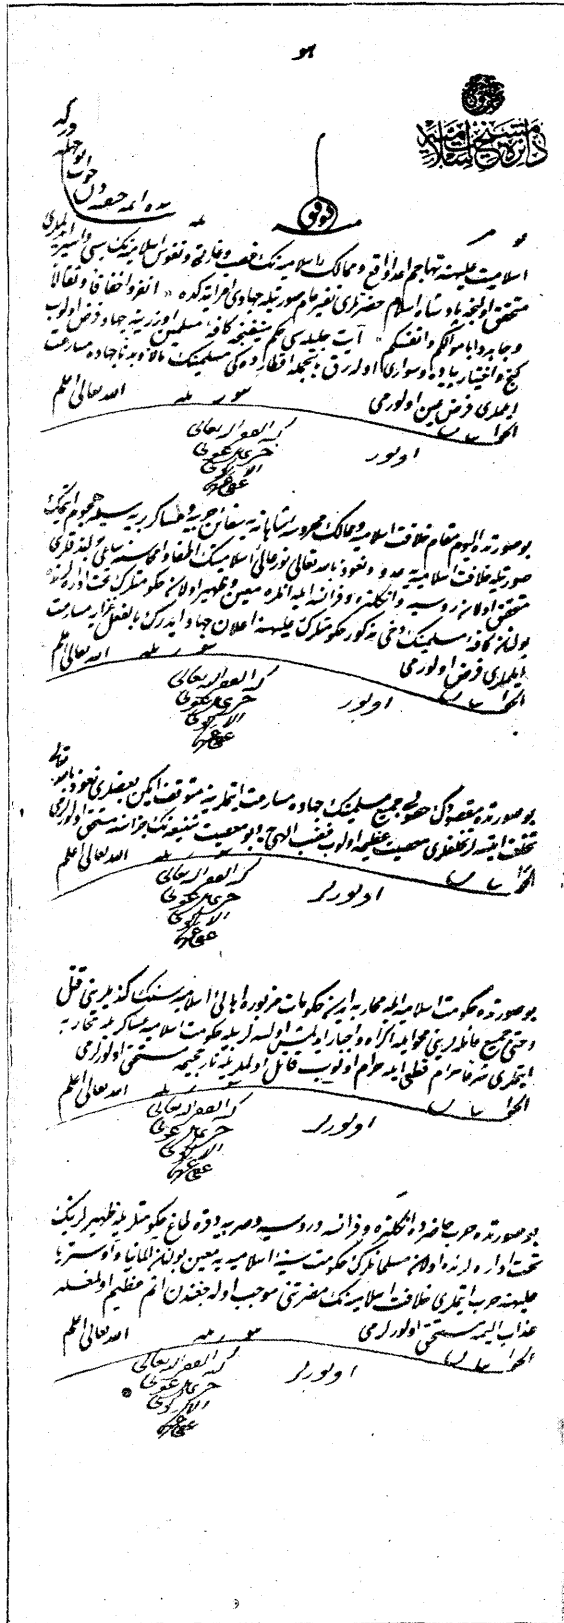 هو
دائرۀ مشيخت اسلاميه
اسلاميت عليهنه تهاجم اعدا واقع وممالك اسلاميه نك غصب وغارتى ونفوس اسلاميه نك سبى واسيرى
متحقق اولنجه پادشاه اسلام حضرتلرى نفير عام صورتيله جهادى امر ايتدكده انفروا خفافا وثقالا
وجاهدوا باموالكم وانفسكم آيت جليله سى حكم منيفنجه كافۀ مسلمين اوزرينه جهاد فرض اولوب
كنج واختيار پياده وسوارى اوله رق بالجمله اقطارده كى مسلمينك مالا وبدنا جهاده مسارعت
ايلملرى فرض عين اولورمى الله تعالى اعلم
الجواب
اولور
كتبه الفقير اليه تعالى
خيرى بن عونى
الاركوبى
عفى عنهما
بو صورتده اليوم مقام خلافت اسلاميه وممالك محروسۀ شاهانه يه سفائن حربيه وعساكر بريه سيله هجوم ايتمك
صورتيله خلافت اسلاميه يه عدو ونعوذ بالله تعالى نور عالى اسلاميتك اطفاسنه ساعى اولدقلرى
متحقق اولان روسيه وانكلتره وفرانسه ايله انلره معين وظهير اولان حكومتلرك تحت اداره لرنده
بولنان كافۀ مسلمينك دخى مذكور حكومتلرك عليهنه اعلان جهاد ايدرك بالفعل غزايه مسارعت
ايلملرى فرض اولورمى الله تعالى اعلم
الجواب
اولور
كتبه الفقير اليه تعالى
خيرى بن عونى
الاركوبى
عفى عنهما
بو صورتده مقصودك حصولى جميع مسلمينك جهاده مسارعت ايتملرينه متوقف ايكن بعضلرى نعوذ بالله تعالى
تخلف ايتسه لر تخلفلرى معصيت عظيمه اولوب غضب الهى يه وبو معصيت شنيعه نك جزاسنه مستحق اولورلرمى
الله تعالى اعلم
الجواب
اولورلر
كتبه الفقير اليه تعالى
خيرى بن عونى
الاركوبى
عفى عنهما
بو صورتده حكومت اسلاميه ايله محاربه ايدن حكومات مزبوره اهالئ اسلاميه سنك كنديلرينى قتل
وحتى جميع عائله لرينى محو ايله اكراه واجبار اولنمش اولسه لر بيله حكومت اسلاميه عساكريله محاربه
ايتملرى شرعا حرام قطعى ايله حرام اولوب قاتل اولملريله نار جحيمه مستحق اولورلرمى الله تعالى اعلم
الجواب
اولورلر
كتبه الفقير اليه تعالى
خيرى بن عونى
الاركوبى
عفى عنهما
بو صورتده حرب حاضرده انكلتره وفرانسه وروسيه وصربيه وقره طاغ حكومتلريله ظهيرلرينك
تحت اداره لرنده اولان مسلمانلرك حكومت سنيۀ اسلاميه يه معين بولنان المانيا واوستريا
عليهنه حرب ايتملرى خلافت اسلاميه نك مضرتنى موجب اوله جغندن اثم عظيم اولمغله
عذاب اليمه مستحق اولورلرمى الله تعالى اعلم
الجواب
اولورلر
كتبه الفقير اليه تعالى
خيرى بن عونى
الاركوبى
عفى عنهما